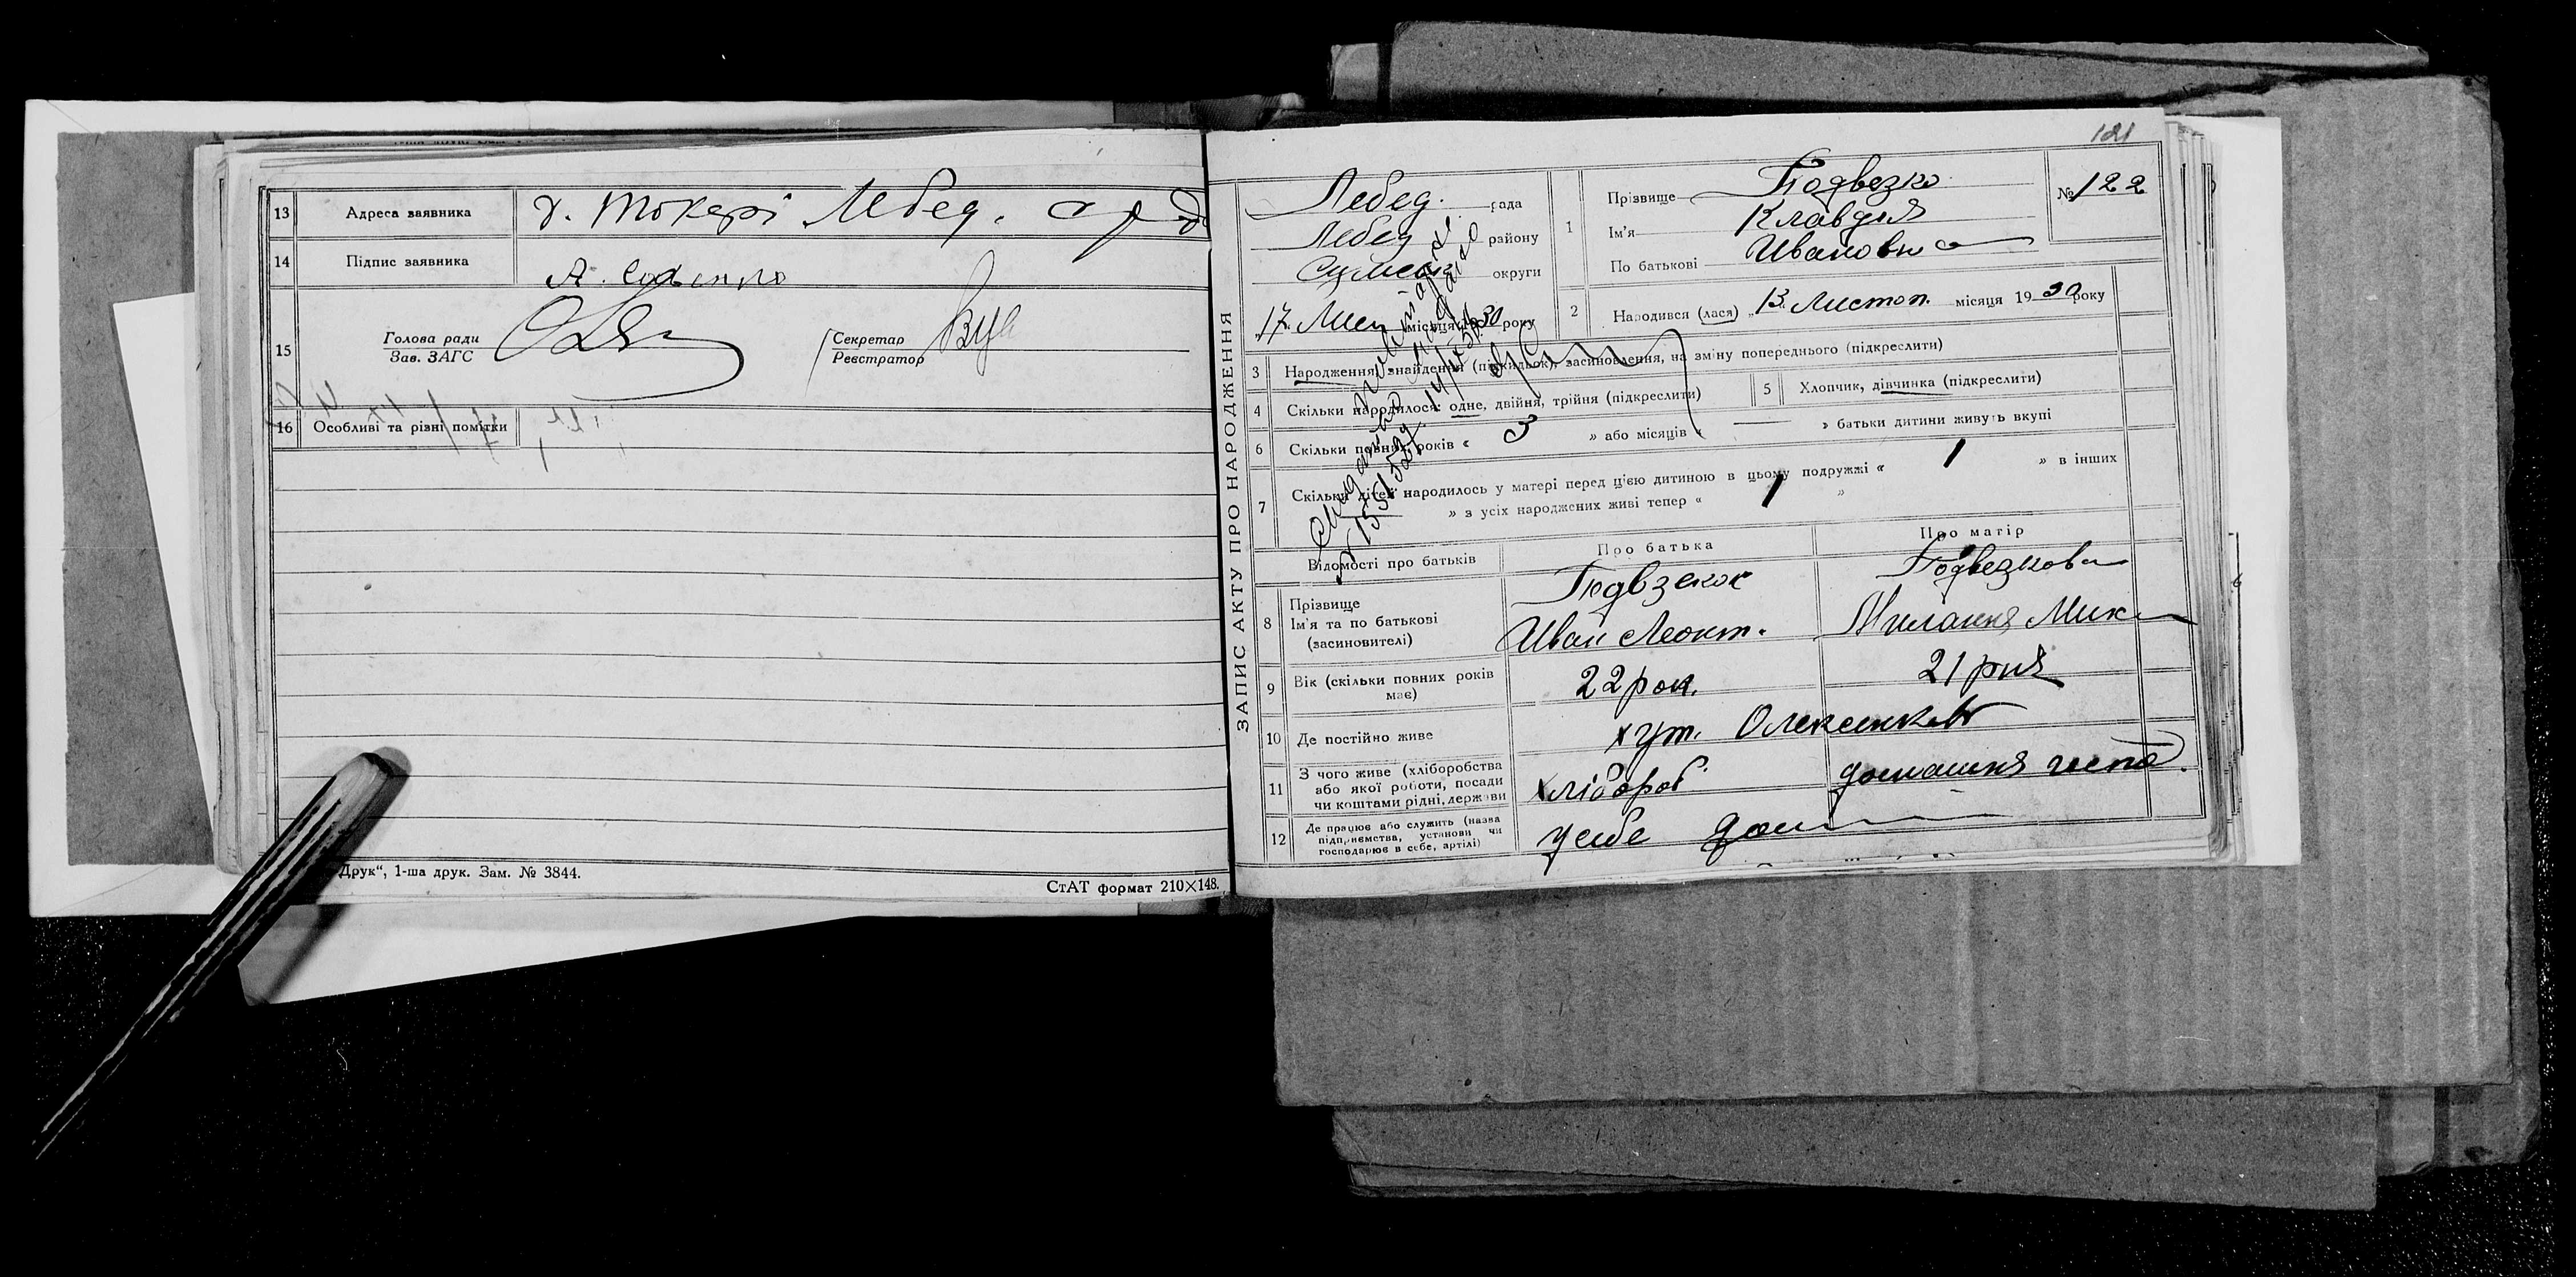 13 Адреса заявника х. Токарі Лебед.
14 Підпис заявника А.
15 Голова ради
Зав. ЗАГС
Секретар
Реєстратор
16 Особливі та різні помітки
Друк“, 1-ша друк. Зам. № 3844.
СтАТ формат 210×148.
121
ЗАПИС АКТУ ПРО НАРОДЖЕННЯ
Лебед. рада
Лебед району
Сумськ округи
17. Лист місяця 1930 року
1 Прізвище Подвезко
Ім'я Клавдия
По батькові Ивановна
№ 122
2 Народився (лася) „13. Листоп. місяця 1930 року
3 Народження, знайдення (підкидьок), засиновлення, на зміну попереднього (підкреслити)
4 Скільки народилося: одне, двійня, трійня (підкреслити)
5 Хлопчик, дівчинка (підкреслити)
6 Скільки повних років « 3 » або місяців « — » батьки дитини живуть вкупі
7 Скільки дітей народилось у матері перед цією дитиною в цьому подружжі « 1 » в інших
» з усіх народжених живі тепер « 1 »
Відомості про батьків Про батька Про матір
8 Прізвище
Ім'я та по батькові
(засиновителі)
Подвезкова
Иван Леонт. Милания Мик
9 Вік (скільки повних років має) 22 рок. 21 рік
10 Де постійно живе хут. Олексенків
11 З чого живе (хліборобства
або якої роботи, посади
чи коштами рідні, держави
хлібороб домашня госпо.
12 Де працює або служить (назва
підприємства, установи чи
господарює в себе, артілі)
у себе дом